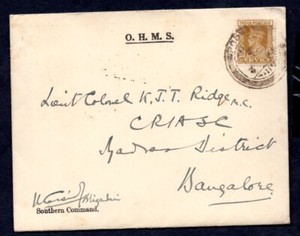 O. H. M. S.
Lieut Colonel K.J.T. Ridge M.C.
CRIASC
Madras District
Bangalore
Brigadier
Southern Command.